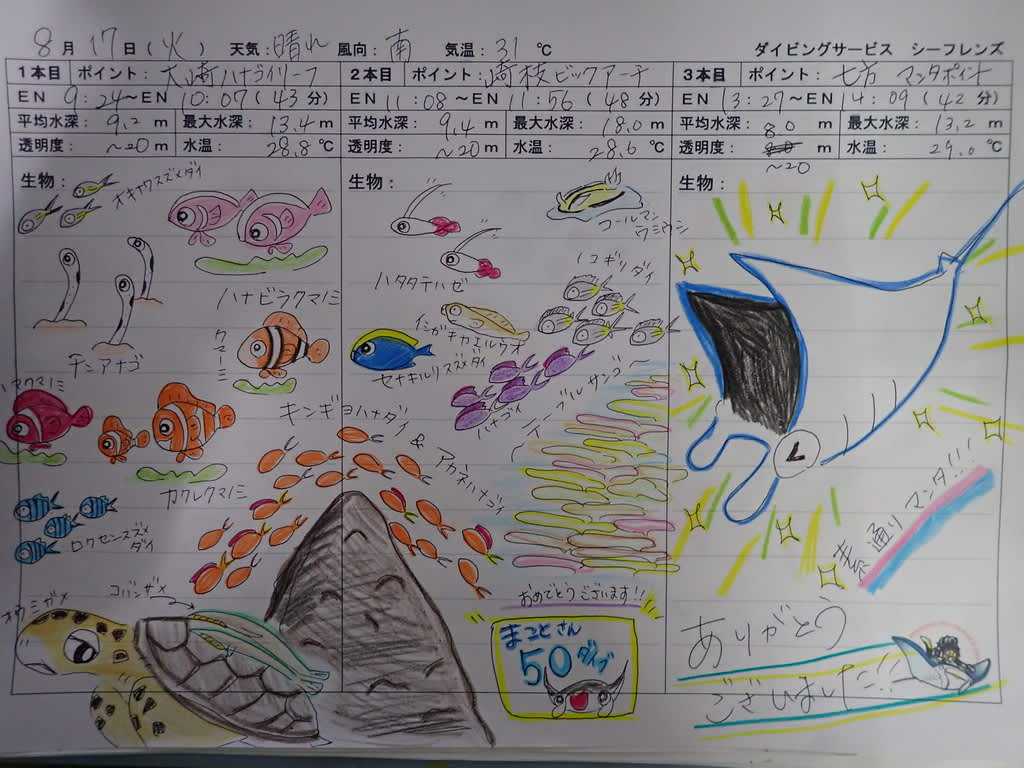 8月17日(火) 天気:晴れ 風向:南 気温:31℃ ダイビングサービス シーフレンズ
1本目 ポイント:大崎ハナゴイリーフ
EN 9:24～EN 10:07(43分)
平均水深: 9.2 m 最大水深: 13.4 m
透明度: ～20 m 水温: 28.8℃
生物:
オキナワスズメダイ
ハナビラクマノミ
チンアナゴ
クマノミ
ハマクマノミ
カクレクマノミ
ロクセンスズメ
ダイ
コバンザメ
アオウミガメ
2本目 ポイント:崎枝ビックアーチ
EN 11:08～EN 11:56(48分)
平均水深: 9.4 m 最大水深: 18.0 m
透明度: ～20 m 水温: 28.6℃
生物:
コールマン
ウミウシ
ハタタテハゼ
ノコギリダイ
イシガキカエルウオ
セナキルリスズメダイ
ハナゴイ
テーブルサンゴ
キンギョハナダイ & アカネハナゴイ
おめでとうございます!!
まことさん
50ダイブ
3本目 ポイント:七方 マンタポイント
EN 13:27～EN 14:09(42分)
平均水深: 8.0 m 最大水深: 13.2 m
透明度: ～20 m 水温: 29.0℃
生物:
素通りマンタ!!!
ありがとう
ございました!!